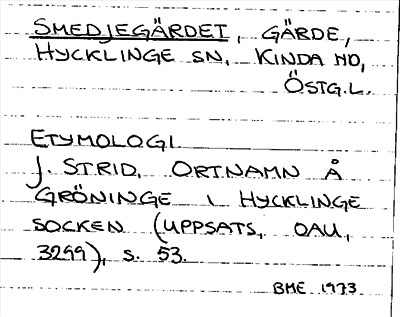 SMEDJEGÄRDET, GÄRDE,
HYCKLINGE SN, KINDA HD,
ÖSTG.L.
ETYMOLOGI.
J. STRID, ORTNAMN Å
GRÖNINGE I HYCKLINGE
SOCKEN (UPPSATS, OAU,
3299), S. 53.
BME 1973